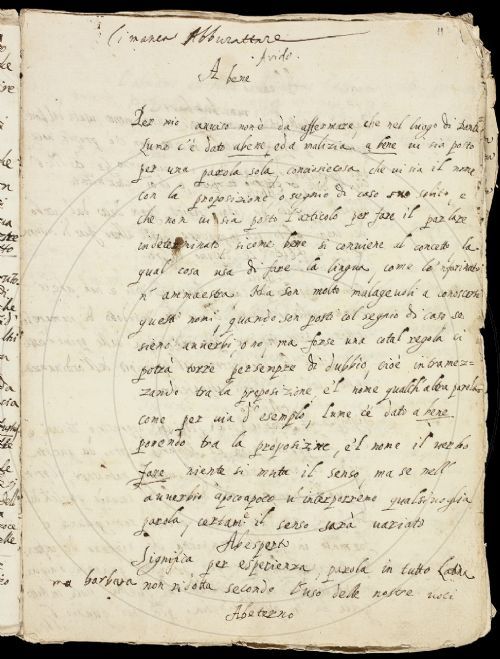 Ci manca Abburattare
Avido.
11
A bene
Per mio avviso non è da affermare che nel luogo di Dante
Lume c'è dato a bene, ed a malizia, a bene vi sia posto
per una parola sola, conciosiecosa che vi sia il nome
con la proposizione o segnio di caso suo solito, e
che non vi sia posto l'articolo per fare il parlare
indeterminato, sicome bene si conviene al concetto, la
qual cosa usa di fare la lingua, come lo
n' ammaestra. Ma son molto malagevoli a conoscersi
questi nomi, quando son posti col segnio di caso se
sieno avverbi, o no, ma forse una cotal regola ci
potrà torre per sempre di dubbio, cioè intramez-
zando tra la preposizione, e'l nome qualch'altra parola
come per via d'esemplo, lume c'è dato a bene
ponendo tra la proposizine, e'l nome il verbo
fare niente si muta il senso, ma se nell'
avverbio apocoapoco v'interporremo qualsivoglia
parola, certam.e il senso sarà variato
Abesperto
Significa per esperienza, parola in tutto Latina
barbara non ridotta secondo l'uso delle nostre voci
Abeterno